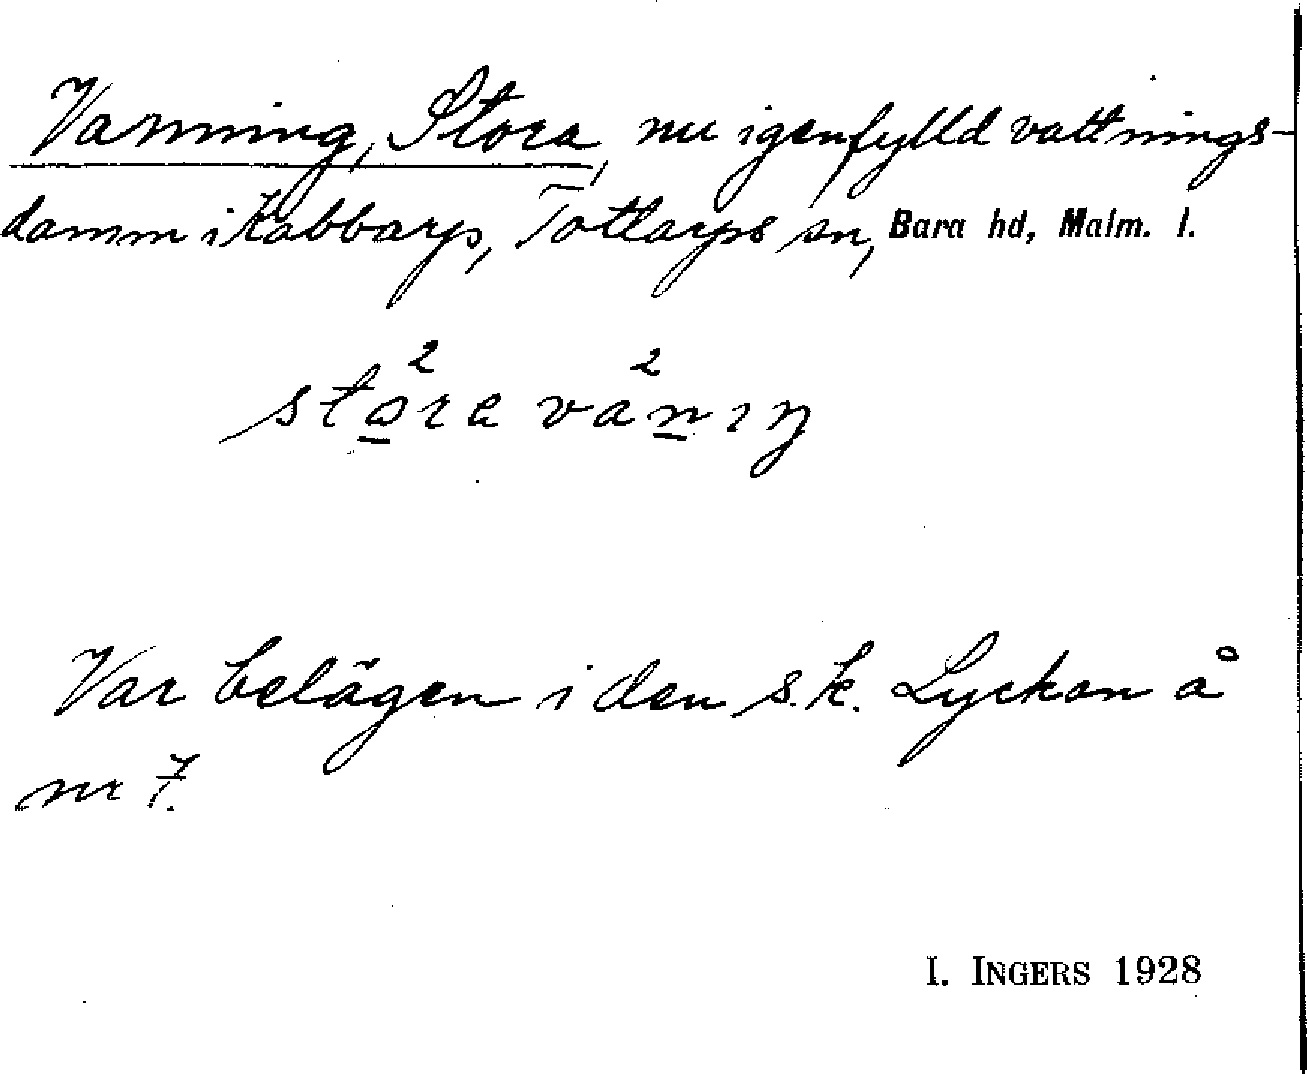 Vanning, Stora, nu igenfylld vattnings-
damm i Kabbarp, Tottarps sn, Bara hd, Malm. l.
Var belägen i den s.k. Lyckan å
nr 7.
I. INGERS 1928